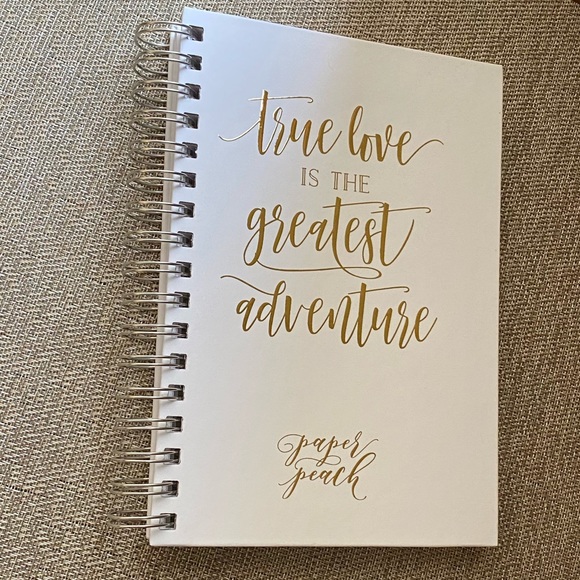 true love
IS THE
greatest
adventure
paper
peach